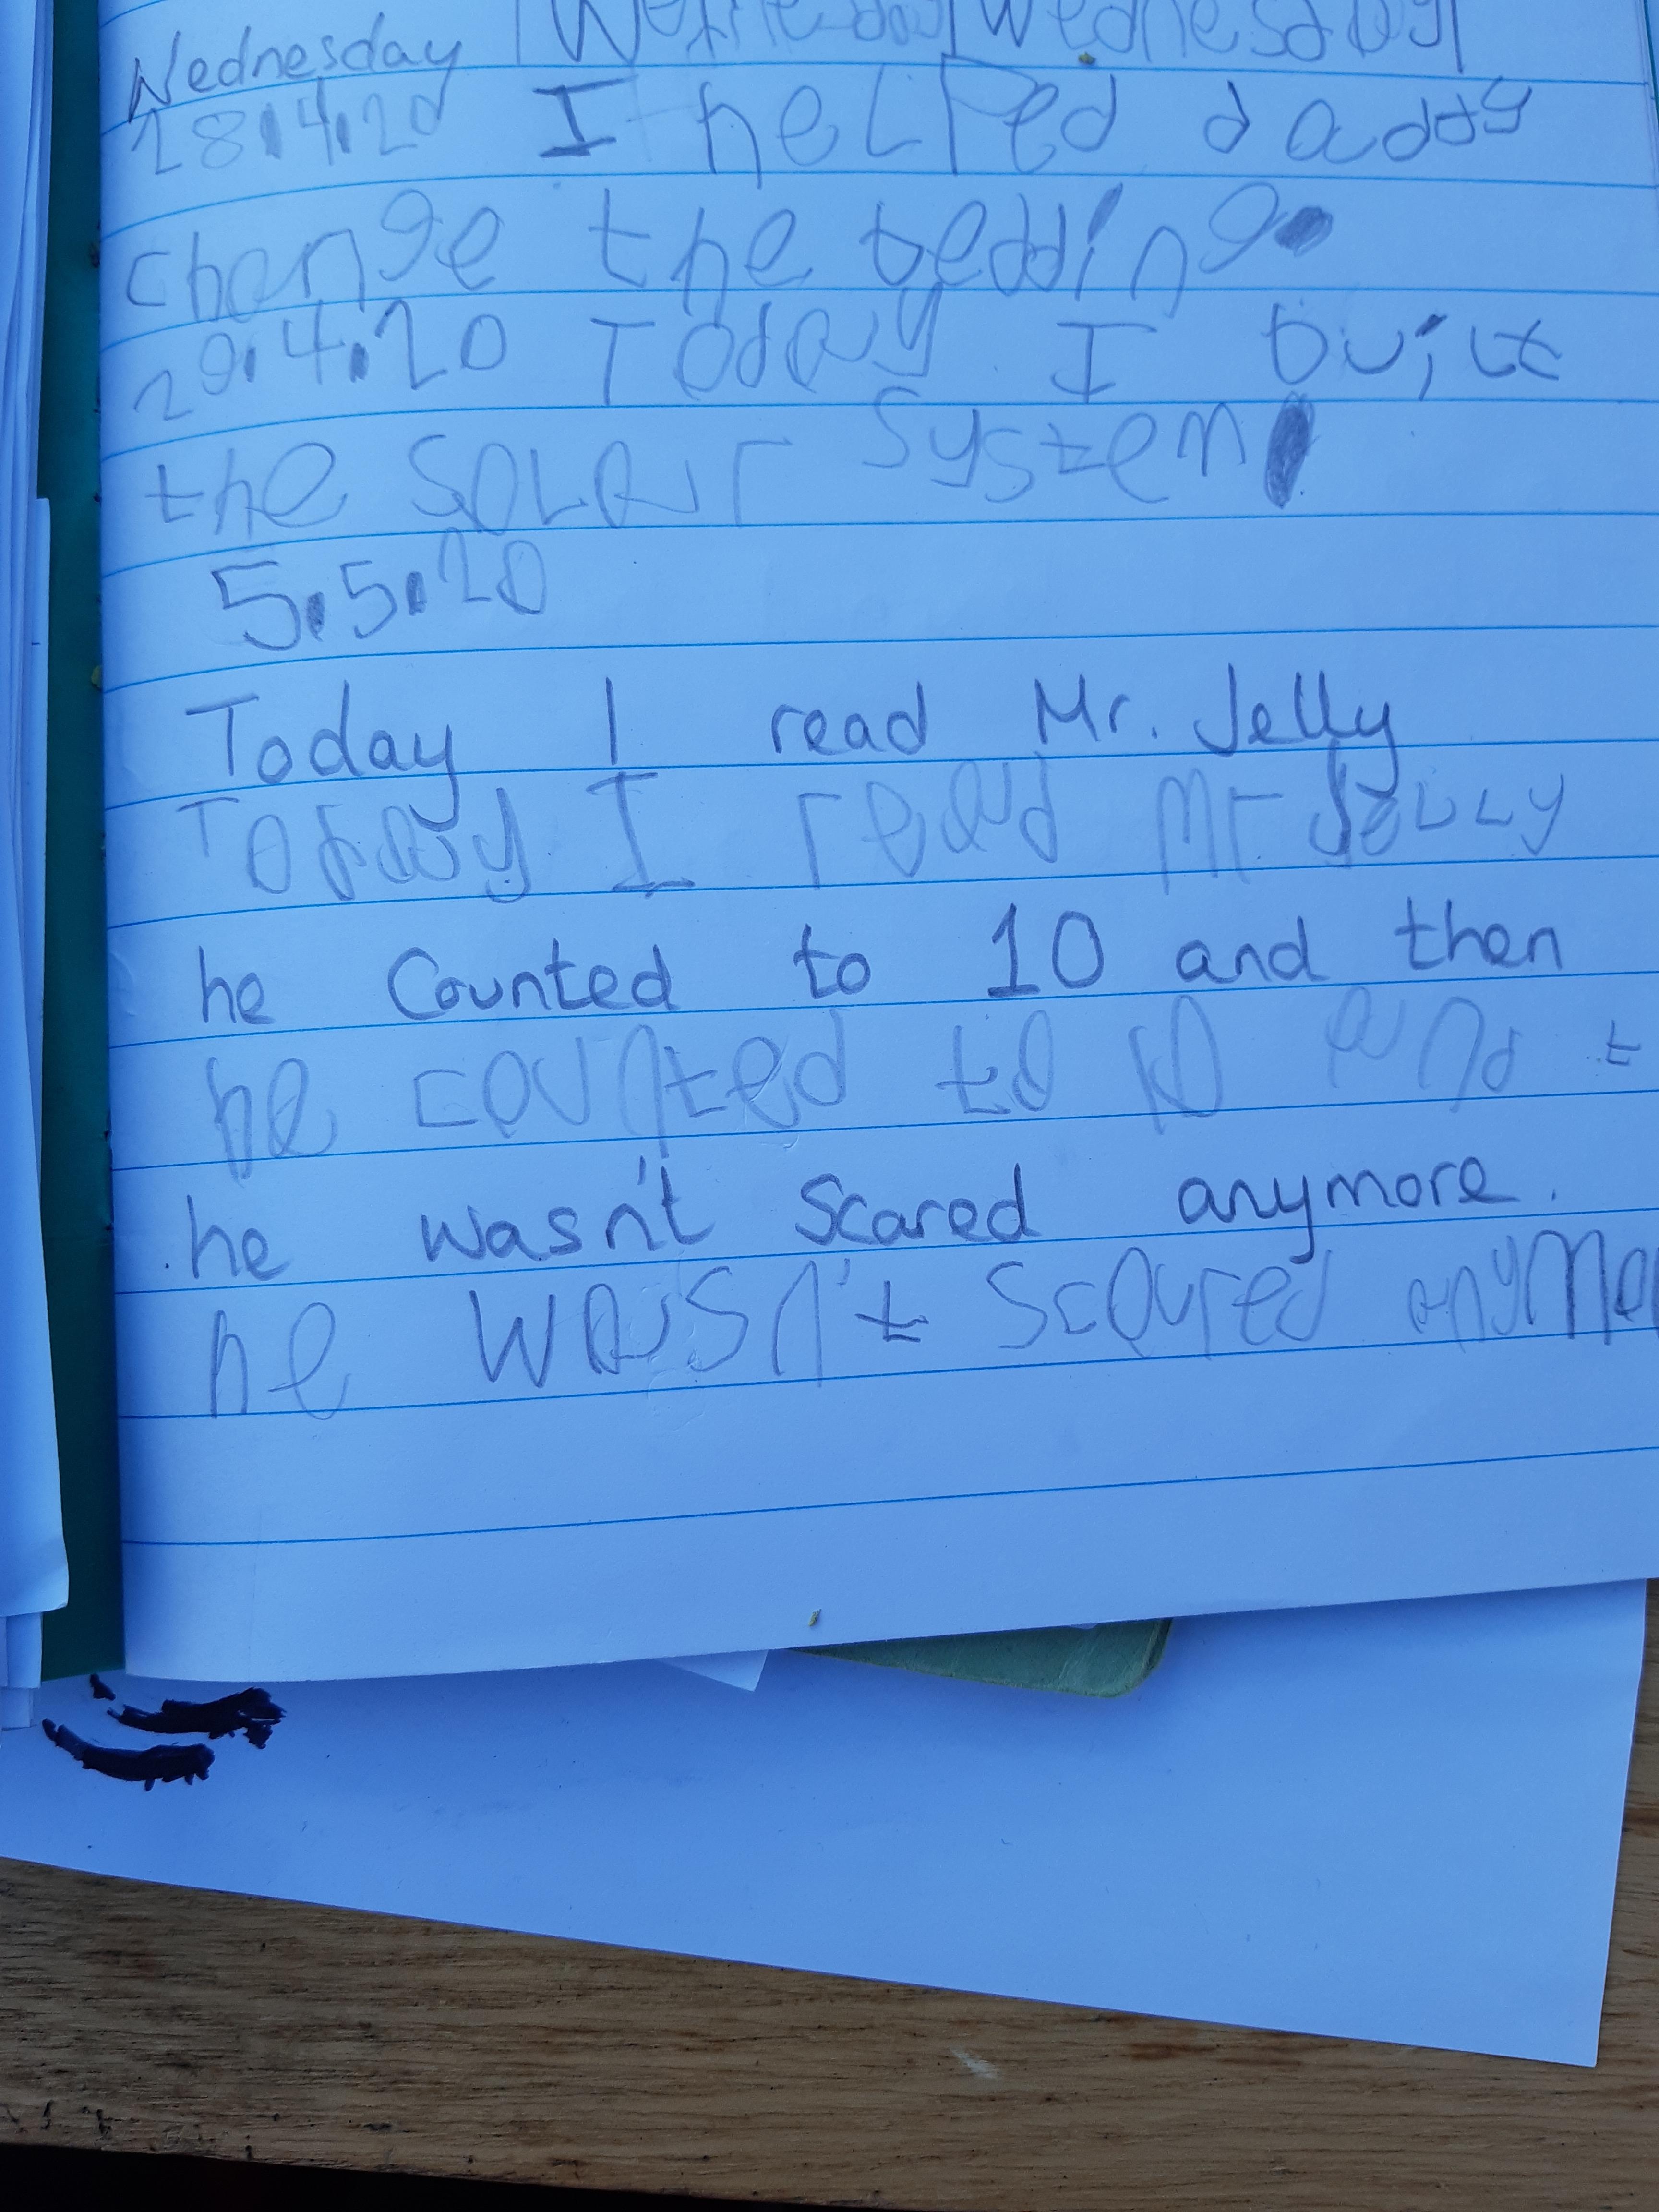 Wednesday Wednesday
28.4.20 I helped daddy
change the bedding.
29.4.20 Today I built
the solar system
5.5.20
Today I read Mr. Jelly
Today I read Mr Jelly
he counted to 10 and then
he counted to 10 and t
he wasn't scared anymore.
he wasn't scared anymo